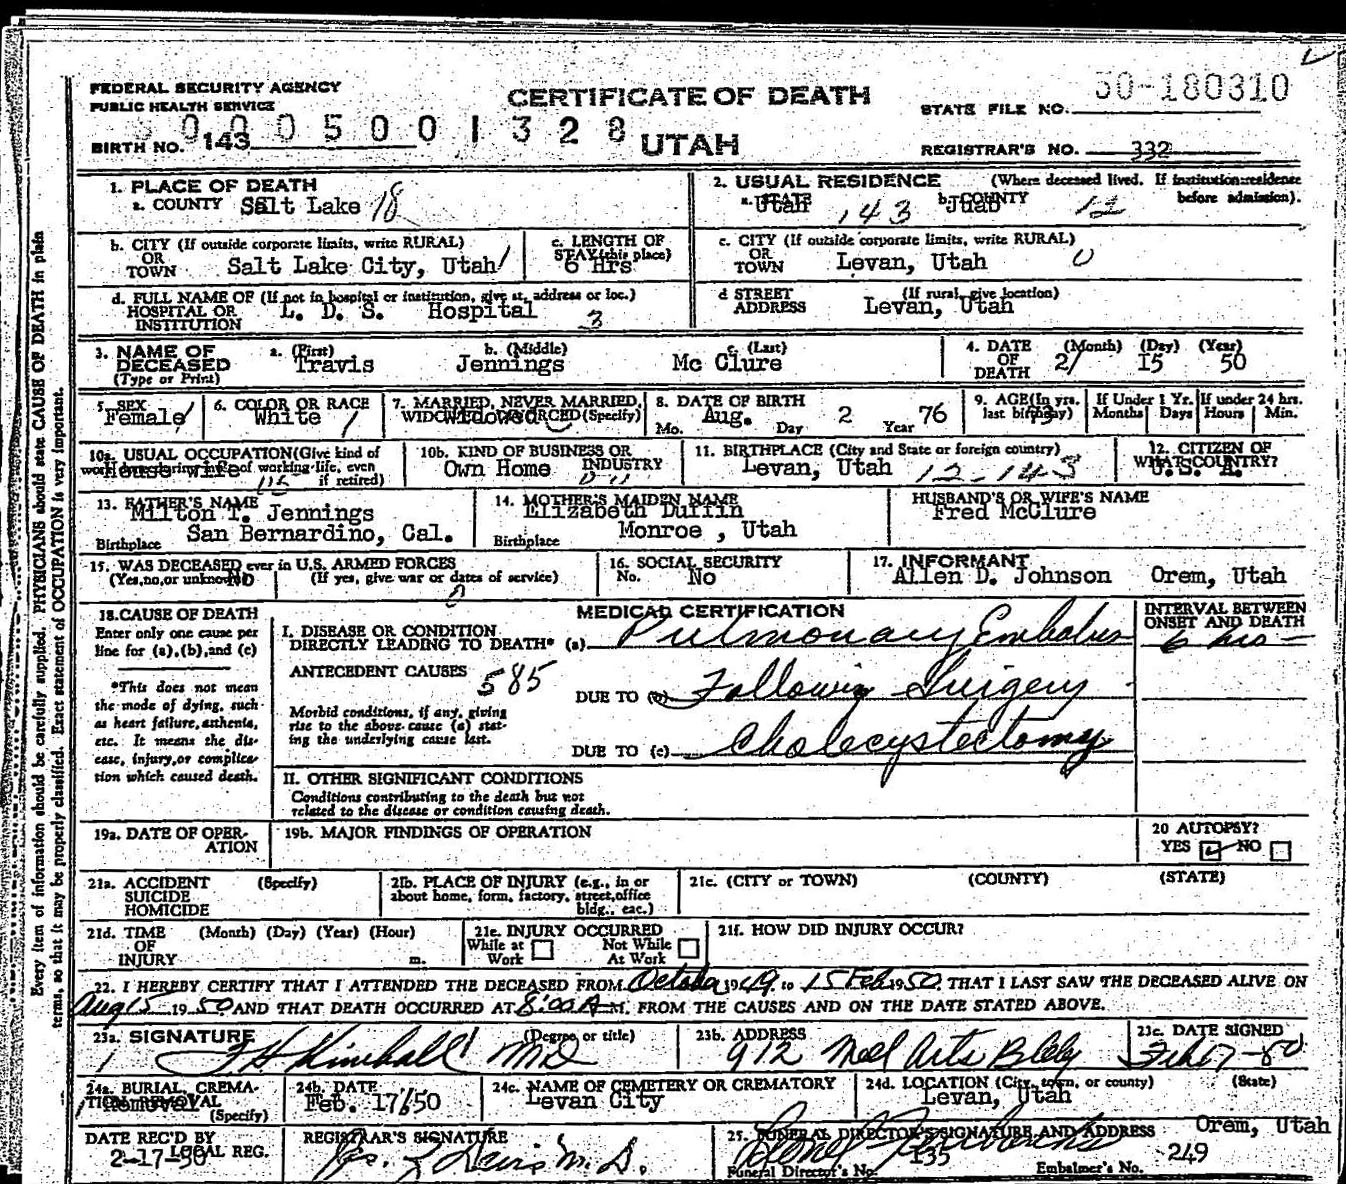 FEDERAL SECURITY AGENCY
PUBLIC HEALTH SERVICE
CERTIFICATE OF DEATH
UTAH
STATE FILE NO. 50-180310
0005001328
BIRTH NO. 143
REGISTRAR'S NO. 332
1. PLACE OF DEATH
a. COUNTY Salt Lake 18
2. USUAL RESIDENCE (Where deceased lived. If institution: residence before admission).
a. STATE Utah 143 b. COUNTY Juab 12
b. CITY (If outside corporate limits, write RURAL) OR TOWN Salt Lake City, Utah
c. LENGTH OF STAY (this place) 6 Hrs
c. CITY (If outside corporate limits, write RURAL) OR TOWN Levan, Utah 0
d. FULL NAME OF (If not in hospital or institution, give st. address or loc.) HOSPITAL OR INSTITUTION L. D. S. Hospital 3
d STREET ADDRESS (If rural, give location) Levan, Utah
3. NAME OF DECEASED (Type or Print)
a. (First) Travis b. (Middle) Jennings c. (Last) Mc Clure
4. DATE OF DEATH (Month) (Day) (Year) 2/ 15 50
5. SEX Female 6. COLOR OR RACE White 7. MARRIED, NEVER MARRIED, WIDOWED, DIVORCED (Specify) Widowed
8. DATE OF BIRTH Mo. Aug. Day 2 Year 76
9. AGE (In yrs. last birthday) 73 If Under 1 Yr. Months Days If under 24 hrs. Hours Min.
10a. USUAL OCCUPATION (Give kind of work done during most of working life, even if retired) House wife
10b. KIND OF BUSINESS OR INDUSTRY Own Home
11. BIRTHPLACE (City and State or foreign country) Levan, Utah 12-143
12. CITIZEN OF WHAT COUNTRY? U. S. A.
13. FATHER'S NAME Milton T. Jennings
Birthplace San Bernardino, Cal.
14. MOTHER'S MAIDEN NAME Elizabeth Duffin
Birthplace Monroe , Utah
HUSBAND'S OR WIFE'S NAME
Fred McClure
15. WAS DECEASED ever in U.S. ARMED FORCES
(Yes, no, or unknown) No (If yes, give war or dates of service) 0
16. SOCIAL SECURITY No. No
17. INFORMANT
Allen D. Johnson Orem, Utah
18. CAUSE OF DEATH
Enter only one cause per line for (a), (b), and (c)
*This does not mean the mode of dying, such as heart failure, asthenia, etc. It means the disease, injury, or complication which caused death.
MEDICAL CERTIFICATION
INTERVAL BETWEEN ONSET AND DEATH
I. DISEASE OR CONDITION DIRECTLY LEADING TO DEATH* (a) Pulmonary Embolus 6 hrs
ANTECEDENT CAUSES 585
Morbid conditions, if any, giving rise to the above cause (a) stating the underlying cause last.
DUE TO (b) Following Surgery
DUE TO (c) Cholecystectomy
II. OTHER SIGNIFICANT CONDITIONS
Conditions contributing to the death but not related to the disease or condition causing death.
19a. DATE OF OPERATION 19b. MAJOR FINDINGS OF OPERATION
20 AUTOPSY? YES NO
21a. ACCIDENT SUICIDE HOMICIDE (Specify)
21b. PLACE OF INJURY (e.g., in or about home, form, factory, street, office bldg., eac.)
21c. (CITY or TOWN) (COUNTY) (STATE)
21d. TIME OF INJURY (Month) (Day) (Year) (Hour) m.
21e. INJURY OCCURRED While at Work Not While At Work
21f. HOW DID INJURY OCCUR?
22. I HEREBY CERTIFY THAT I ATTENDED THE DECEASED FROM October 1949, to 15 Feb 1950, THAT I LAST SAW THE DECEASED ALIVE ON
Aug 15 1950 AND THAT DEATH OCCURRED AT 8:00 A M. FROM THE CAUSES AND ON THE DATE STATED ABOVE.
23a. SIGNATURE (Degree or title) F H Kimball MD
23b. ADDRESS 912 Med Arts Bldg
23c. DATE SIGNED Feb 17-50
24a. BURIAL, CREMATION, REMOVAL (Specify) Removal
24b. DATE Feb. 17/50
24c. NAME OF CEMETERY OR CREMATORY Levan City
24d. LOCATION (City, town, or county) (State) Levan, Utah
DATE REC'D BY LOCAL REG. 2-17-50
REGISTRAR'S SIGNATURE
25. FUNERAL DIRECTOR'S SIGNATURE AND ADDRESS Orem, Utah
Funeral Director's No. 135 Embalmer's No. 249
Every item of information should be carefully supplied. PHYSICIANS should state CAUSE OF DEATH in plain
terms, so that it may be properly classified. Exact statement of OCCUPATION is very important.